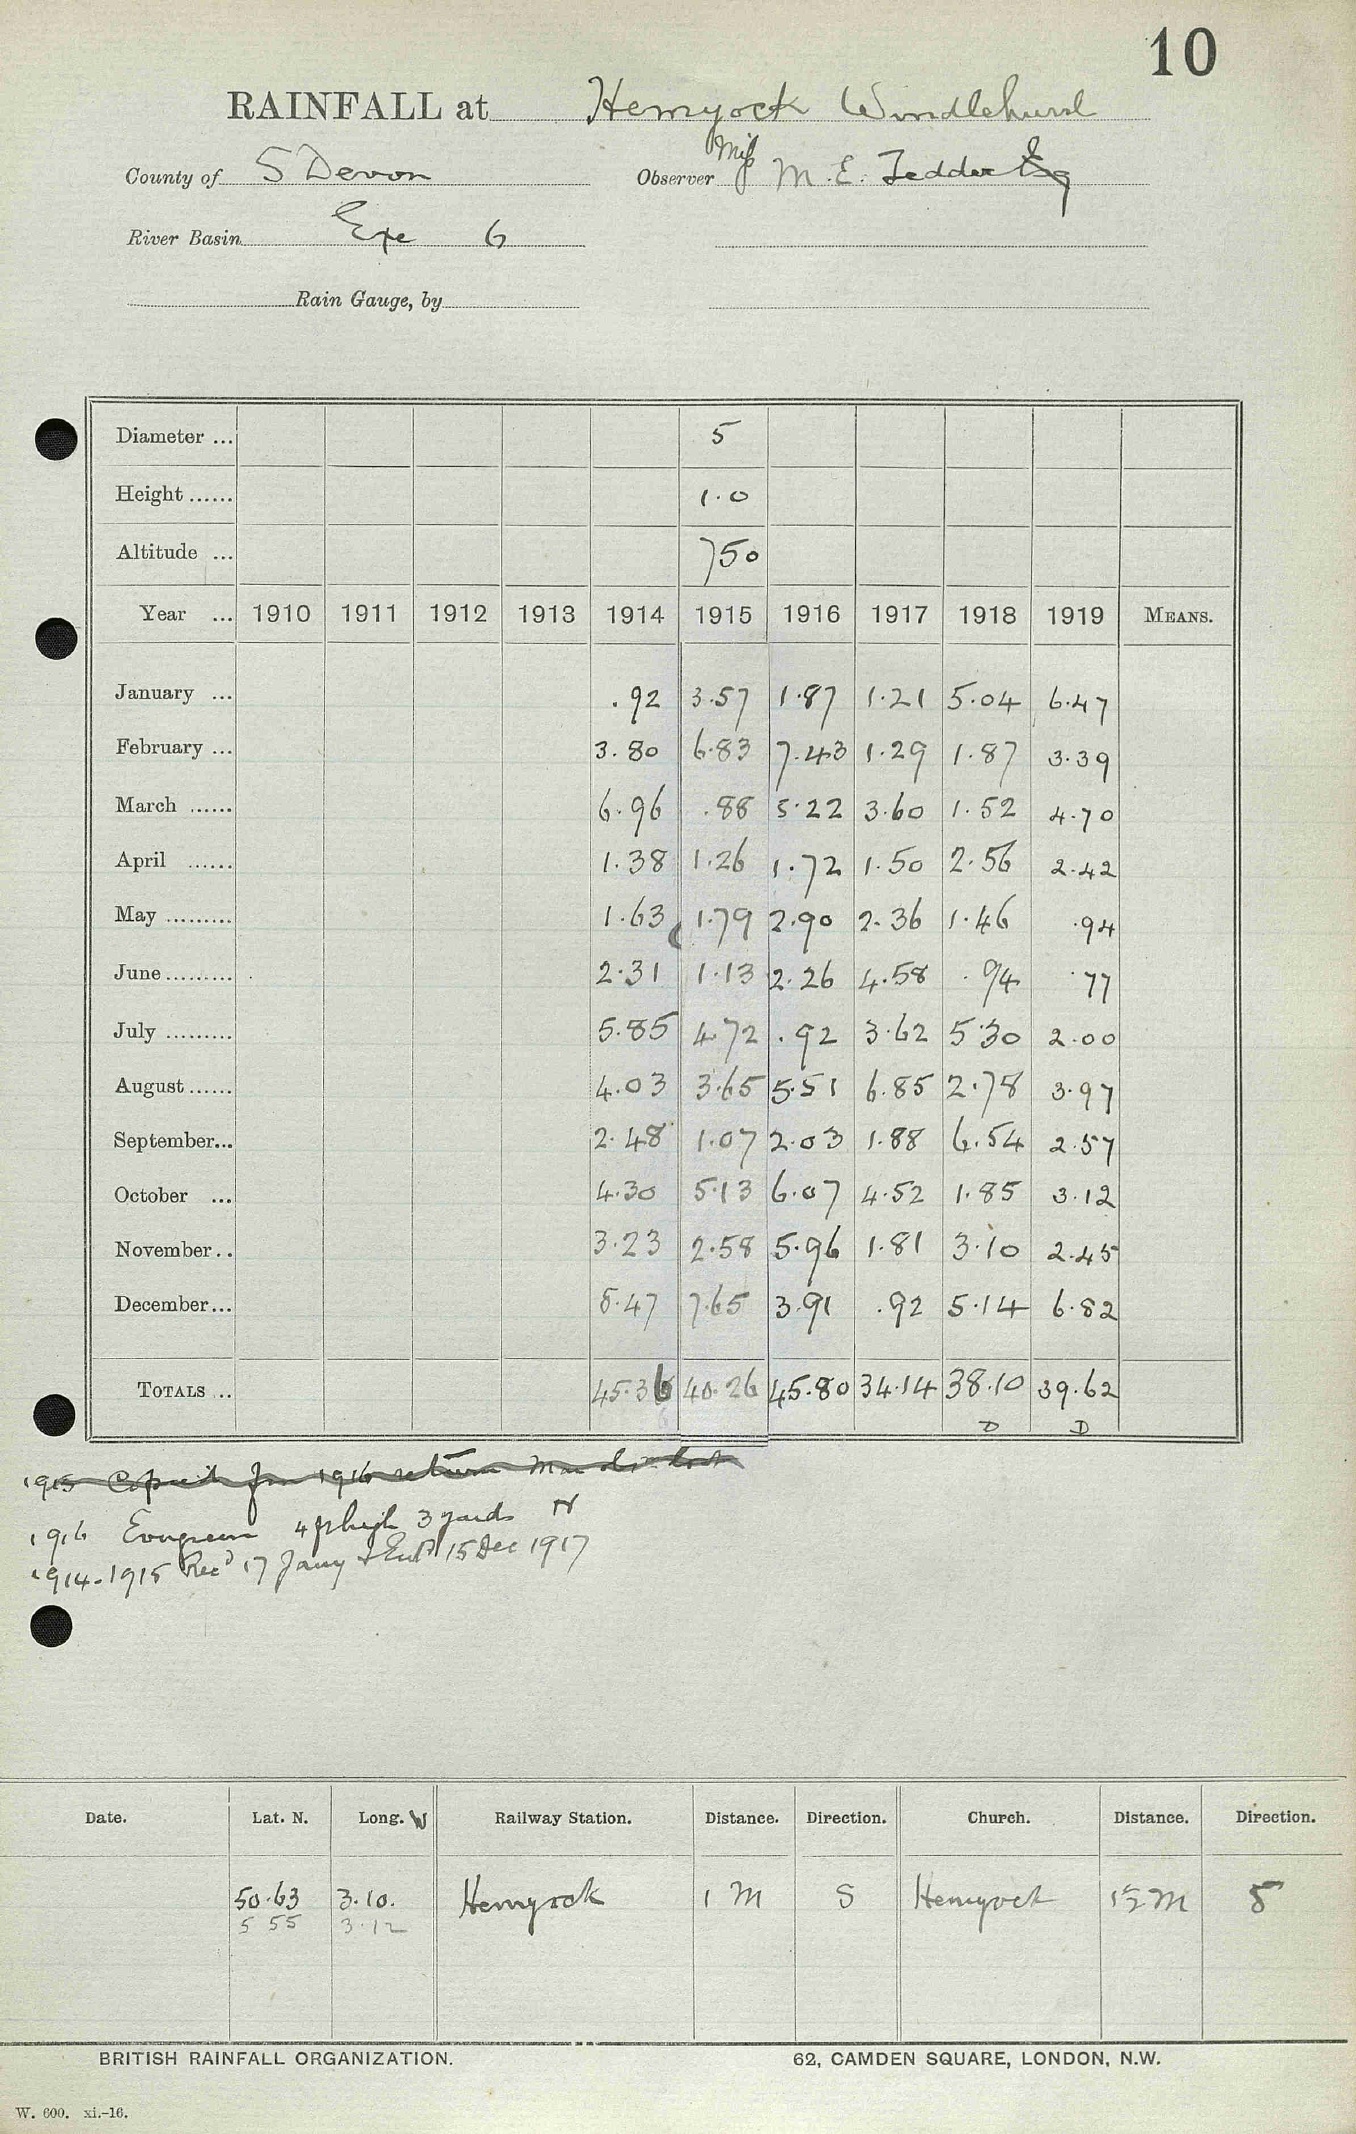 10
RAINFALL at Hemyock Windlehurst
County of S Devon Observer Miss M. E. Tedder Esq
River Basin Exe 6
Rain Gauge, by
Diameter ... 5
Height ...... 1.0
Altitude ... 750
Year ... 1910 1911 1912 1913 1914 1915 1916 1917 1918 1919 MEANS.
January ... .92 3.57 1.87 1.21 5.04 6.47
February ... 3.80 6.83 7.43 1.29 1.87 3.39
March ...... 6.96 .88 5.22 3.60 1.52 4.70
April ...... 1.38 1.26 1.72 1.50 2.56 2.42
May ......... 1.63 1.79 2.90 2.36 1.46 .94
June ......... 2.31 1.13 2.26 4.58 .94 .77
July ......... 5.85 4.72 .92 3.62 5.30 2.00
August ...... 4.03 3.65 5.51 6.85 2.78 3.97
September... 2.48 1.07 2.03 1.88 6.54 2.57
October ... 4.30 5.13 6.07 4.52 1.85 3.12
November .. 3.23 2.58 5.96 1.81 3.10 2.45
December... 8.47 7.65 3.91 .92 5.14 6.82
TOTALS .. 45.36 40.26 45.80 34.14 38.10 39.62
D D
1915 Copied from 1916 return
1916 Evergreen 4 ft high 3 yards N
1914-1915 Recd 17 Jany & Entd 15 Dec 1917
Date. Lat. N. Long. W Railway Station. Distance. Direction. Church. Distance. Direction.
50.63 3.10. Hemyock 1 M S Hemyock 1½ M S
5 55 3.12
BRITISH RAINFALL ORGANIZATION. 62, CAMDEN SQUARE, LONDON, N.W.
W. 600. xi.-16.